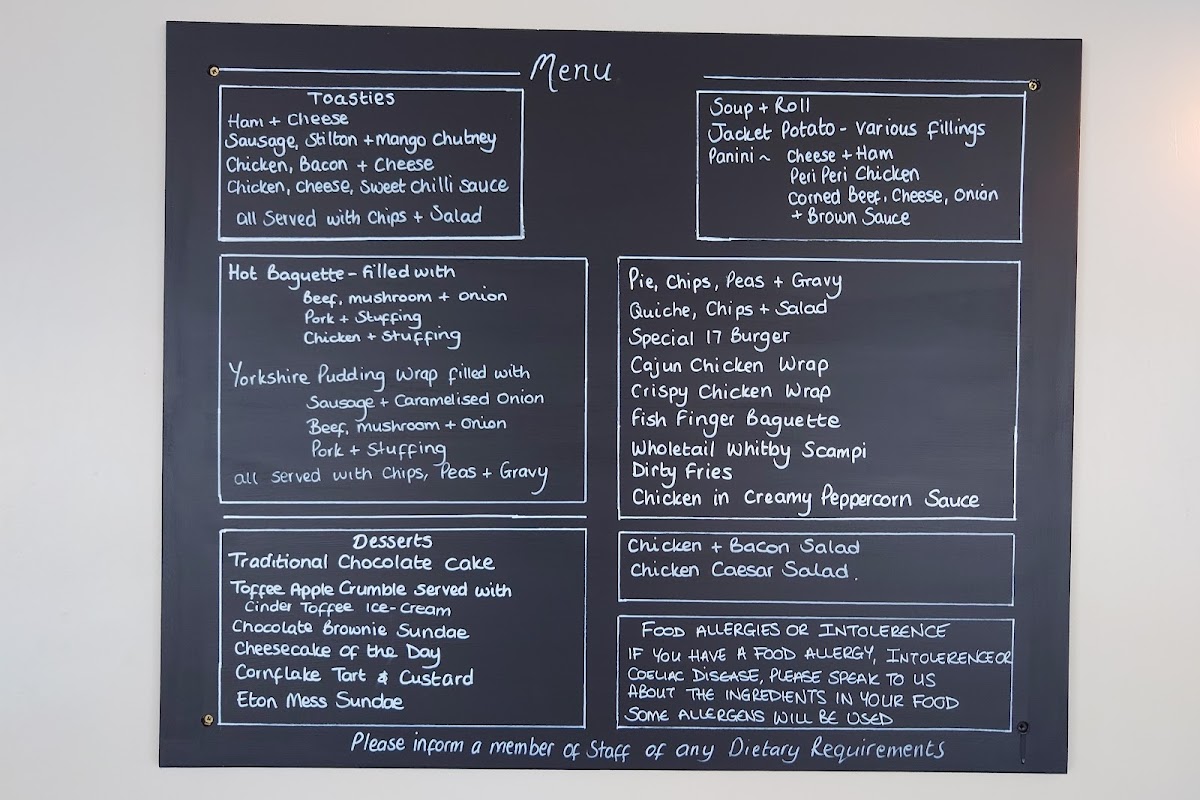 Menu
Toasties
Ham + Cheese
Sausage, Stilton + Mango Chutney
Chicken, Bacon + Cheese
Chicken, Cheese, Sweet Chilli Sauce
all Served with Chips + Salad
Soup + Roll
Jacket Potato - Various fillings
Panini ~ Cheese + Ham
Peri Peri Chicken
Corned Beef, Cheese, Onion
+ Brown Sauce
Hot Baguette - filled with
Beef, mushroom + onion
Pork + Stuffing
Chicken + Stuffing
Yorkshire Pudding Wrap filled with
Sausage + Caramelised Onion
Beef, mushroom + Onion
Pork + Stuffing
all served with Chips, Peas + Gravy
Pie, Chips, Peas + Gravy
Quiche, Chips + Salad
Special 17 Burger
Cajun Chicken Wrap
Crispy Chicken Wrap
Fish Finger Baguette
Wholetail Whitby Scampi
Dirty Fries
Chicken in Creamy Peppercorn Sauce
Desserts
Traditional Chocolate Cake
Toffee Apple Crumble served with
Cinder Toffee Ice-Cream
Chocolate Brownie Sundae
Cheesecake of the Day
Cornflake Tart & Custard
Eton Mess Sundae
Chicken + Bacon Salad
Chicken Caesar Salad.
FOOD ALLERGIES OR INTOLERENCE
IF YOU HAVE A FOOD ALLERGY, INTOLERENCE OR
COELIAC DISEASE, PLEASE SPEAK TO US
ABOUT THE INGREDIENTS IN YOUR FOOD
SOME ALLERGENS WILL BE USED
Please inform a member of Staff of any Dietary Requirements